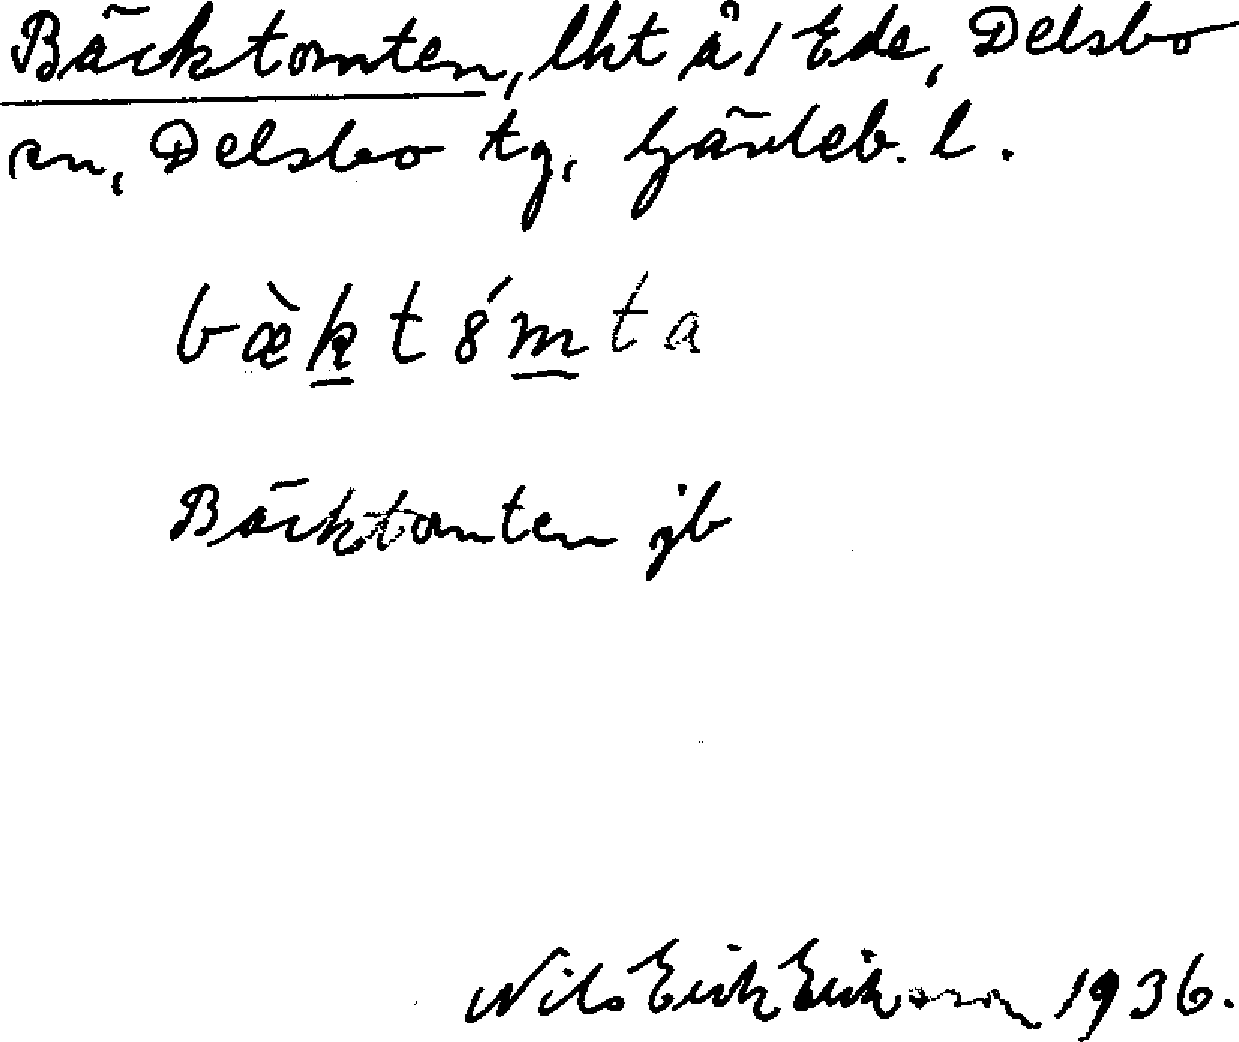 Bäcktomten, lht å/ Ede, Delsbo
sn, Delsbo tg, Gävleb. l.
bæ̀k̲t8́m̲ta
Bäcktomten jb
Nils Erik Eriksson 1936.